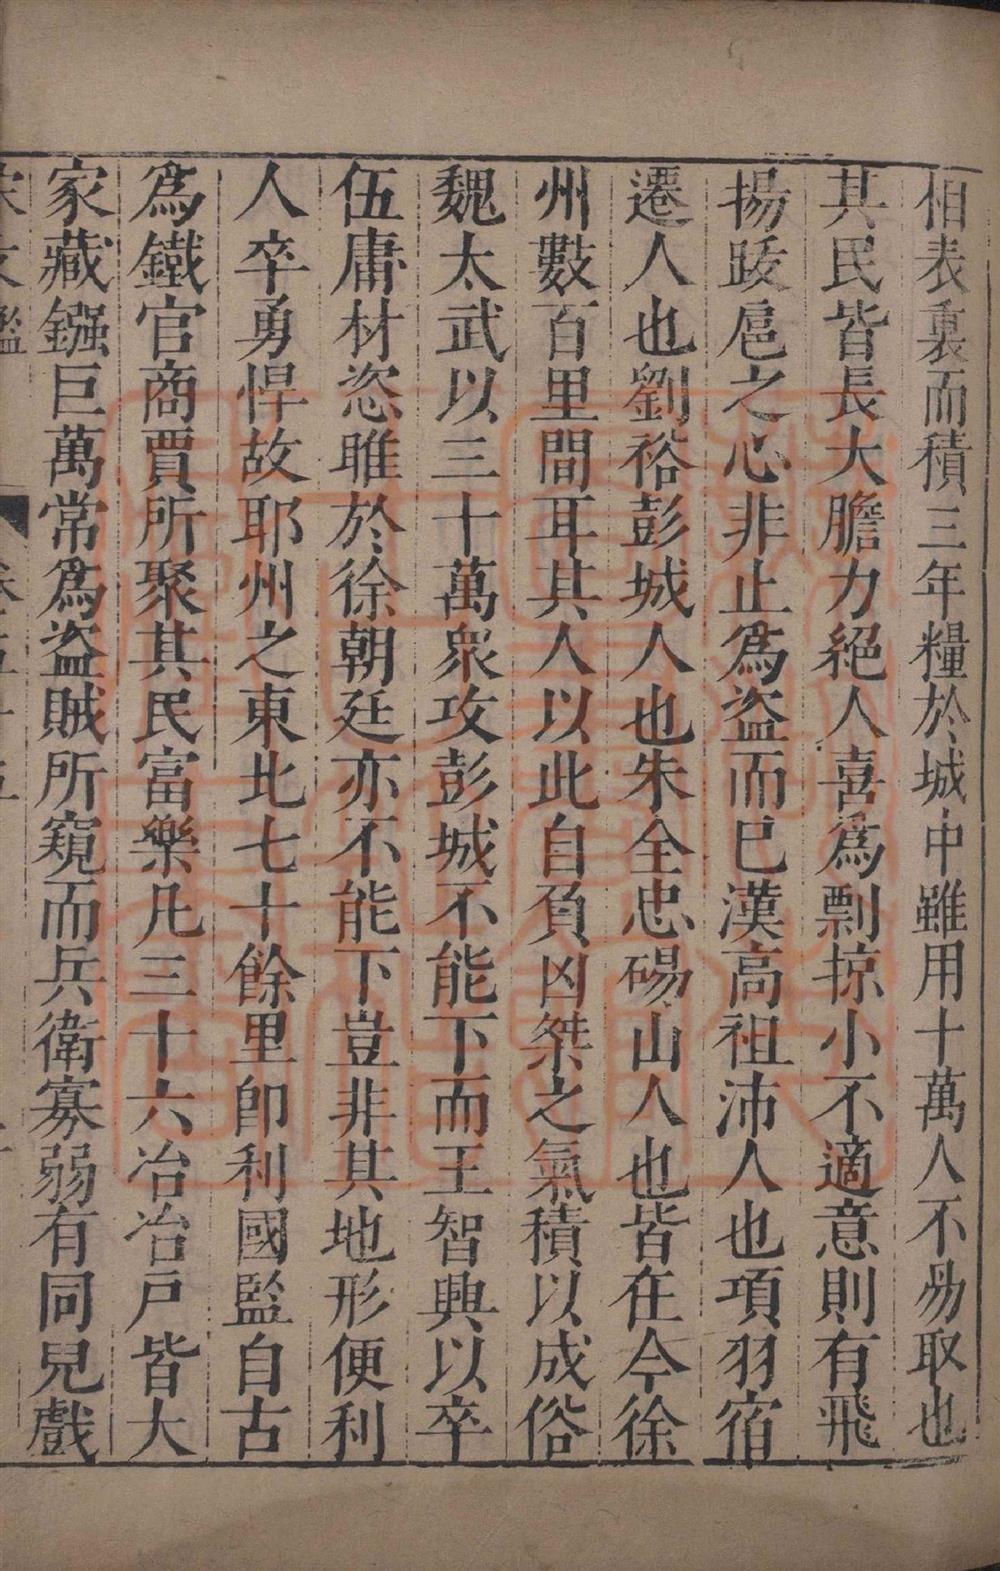 相表裏而積三年糧於城中雖用十萬人不易取也
其民皆長大膽力絕人喜爲剽掠小不適意則有飛
揚跋扈之心非止爲盜而已漢高祖沛人也項羽宿
遷人也劉裕彭城人也朱全忠碭山人也皆在今徐
州數百里間耳其人以此自負凶桀之氣積以成俗
魏太武以三十萬衆攻彭城不能下而王智興以卒
伍庸材恣睢於徐朝廷亦不能下豈非其地形便利
人卒勇悍故耶州之東北七十餘里即利國監自古
爲鐵官商賈所聚其民富樂凡三十六冶冶戶皆大
家藏鏹巨萬常爲盜賊所窺而兵衛寡弱有同兒戲
宋文鑑 卷五十五